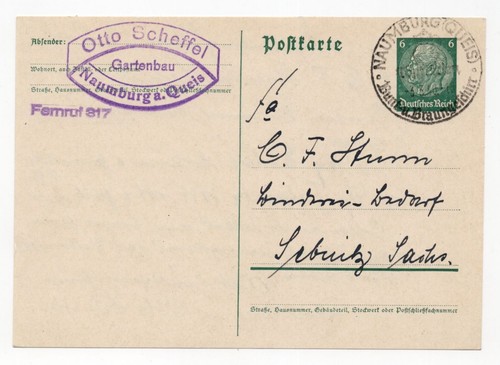 Absender:
Otto Scheffel
Gartenbau
Naumburg a. Queis
Wohnort, auch Zustell- oder Leitpostamt
Straße, Hausnummer, Gebäudeteil, Stockwerk oder Postschließfachnummer
Fernruf 317
Postkarte
NAUMBURG (QUEIS)
6 6
Deutsches Reich
Fa
C. F. Sturm
Binderei-Bedarf
Sebnitz Sachs.
Straße, Hausnummer, Gebäudeteil, Stockwerk oder Postschließfachnummer